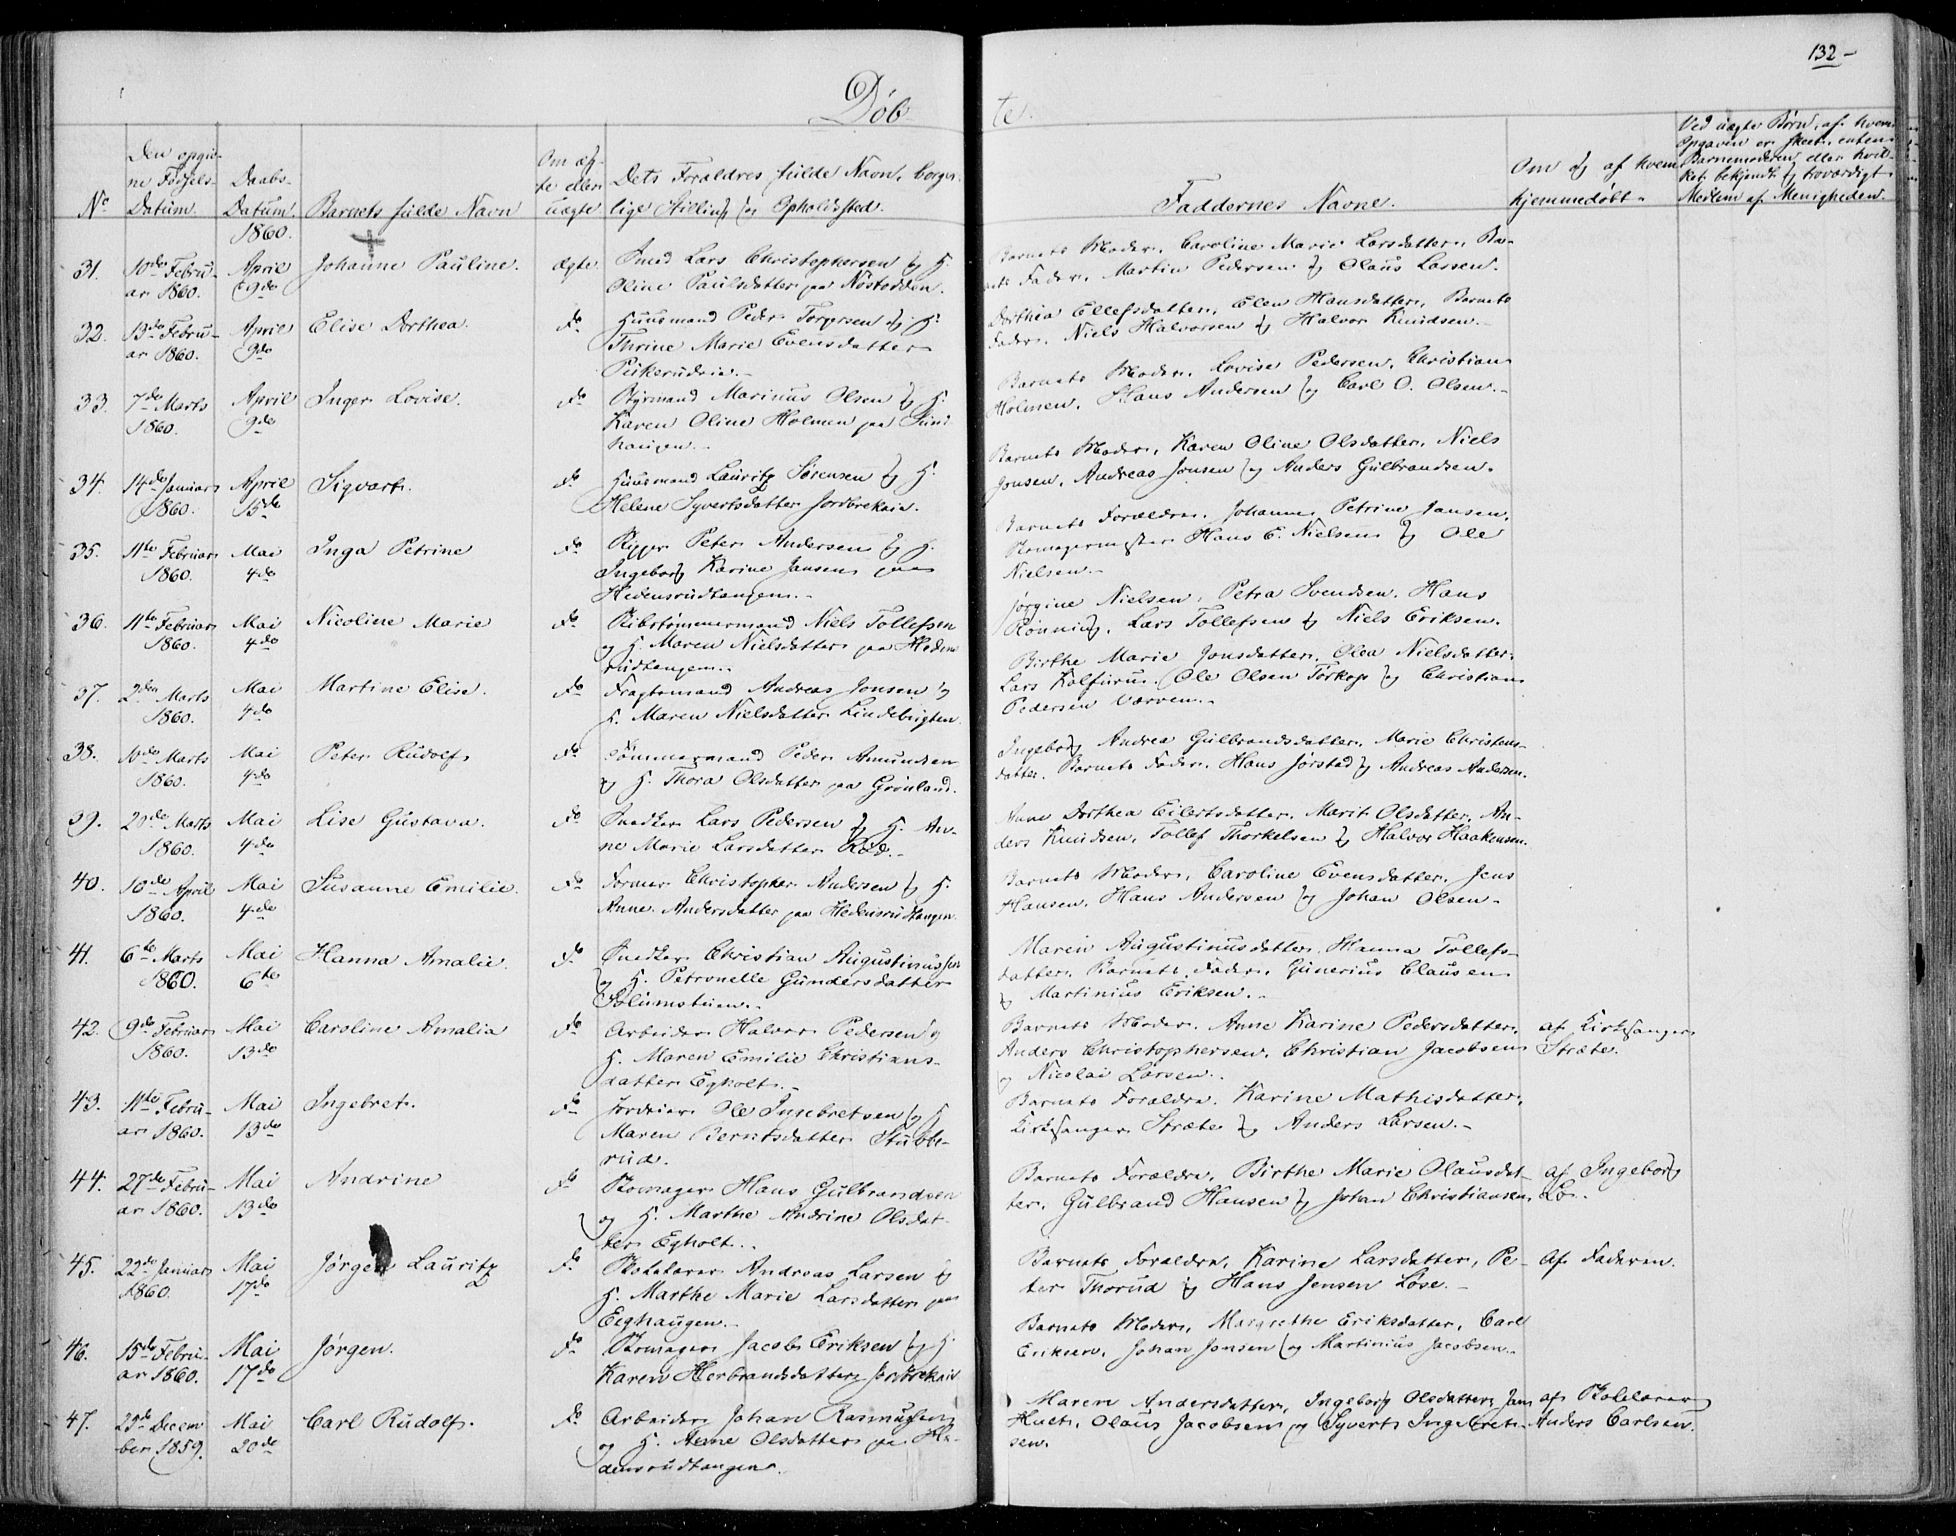 132-
Døbte.
No
Den opgivne Fødsels-Datum.
Daabs-Datum.
Barnets fulde Navn
Om ægte eller uægte
Dets Forældres fulde Navn, borgerlige Stilling og Opholdssted.
Faddernes Navne.
Om og af hvem hjemmedøbt.
Ved uægte Børn, af hvem Opgaven er skeet, enten Barnemoderen eller hvilket bekjendt og troværdigt Medlem af Menigheden.
1860.
31. 10de Februar 1860. April 9de Johanne Pauline. ægte Smed Lars Christophersen og H.
Oline Paulsdatter paa Nøstodden.
Barnets Moder, Caroline Marie Larsdatter, Barnets Fader, Martin Pedersen og Olaus Larsen.
32. 13de Februar 1860. April 9de Elise Dorthea. do Huusmand Peder Torgersen og H.
Thrine Marie Evensdatter
Pikerudeie.
Dorthea Ellefsdatter, Elen Hansdatter, Barnets
Fader, Niels Halvorsen og Halvor Knudsen.
33. 7de Marts 1860. April 9de Inger Lovise. do Styrmand Marinus Olsen og H.
Karen Oline Holmen paa
Barnets Moder, Lovise Pedersen, Christian
Holmen, Hans Andersen og Carl O. Olsen.
34. 14de Januar 1860. April 15de Sigvart. do Huusmand Lauritz Sørensen og H.
Helene Syvertsdatter Jordbrekeie.
Barnets Moder, Karen Oline Olsdatter, Niels
Jonsen, Andreas Jonsen og Anders Gulbrandsen.
35. 11te Februar 1860. Mai 4de Inga Petrine do Rigger Peter Andersen og H.
Ingeborg Karine Jansen paa
Hedensrudtangen.
Barnets Forældre, Johanne Petrine Jansen,
Skomagermester Hans E. Nielsen og Ole
Nielsen.
36. 11te Februar 1860. Mai 4de Nicoline Marie do Skibstømmermand Niels Tollefsen
og H. Maren Nielsdatter paa Hedensrudtangen.
Jørgine Nielsen, Petra Svendsen, Hans
Rønning, Lars Tollefsen og Niels Eriksen.
37. 2den Marts 1860. Mai 4de Martine Elise. do Fragtemand Andreas Jonsen og
H. Maren Nielsdatter Lindebugten.
Birthe Marie Jonsdatter, Olea Nielsdatter,
Lars Kalfurus, Ole Olsen Torkop og Christian
Pedersen Værven.
38. 10de Marts 1860. Mai 4de Peter Rudolf. do Tømmermand Peder Amundsen
og H. Thora Olsdatter paa Grønland.
Ingeborg Andrea Gulbrandsdatter, Marie Christensdatter, Barnets Fader, Hans Jørstad og Andreas Andersen.
39. 20de Marts 1860. Mai 4de Lise Gustava. do Snedker Lars Pedersen og H. Anne Marie Larsdatter Rød.
Anne Dorthea Eilertsdatter, Marit Olsdatter, Anders Knudsen, Tollef Thorkelsen og Halvor Haakensen.
40. 10de April 1860. Mai 4de Susanne Emilie. do Former Christopher Andersen og H.
Anne Andersdatter paa Hedensrudtangen.
Barnets Moder, Caroline Evensdatter, Jens
Hansen, Hans Andersen og Johan Olsen.
41. 6te Marts 1860. Mai 6te Hanna Amalie. do Snedker Christian Augustinussen
og H. Petronelle Gundersdatter

Maren Augustinusdatter, Hanna Tollefsdatter, Barnets Fader, Gunerius Clausen
og Martinius Eriksen.
42. 9de Februar 1860. Mai 13de Caroline Amalia do Arbeider Halvor Pedersen og
H. Maren Emilie Christiansdatter Egholt.
Barnets Moder, Anne Karine Pedersdatter,
Anders Christophersen, Christian Jacobsen
og Nicolai Larsen.
af Kirkesanger Stræte.
43. 11te Februar 1860. Mai 13de Ingebret. do Jordeier Ole Ingebretsen og H
Maren Berntsdatter Stubberud.
Barnets Forældre, Karine Mathisdatter,
Kirkesanger Stræte og Anders Larsen.
44. 27de Februar 1860. Mai 13de Andrine do Skomager Hans Gulbrandsen
og H. Marthe Andrine Olsdatter Egholt.
Barnets Forældre, Birthe Marie Olausdatter, Gulbrand Hansen og Johan Christiansen
af Ingeborg Lø.
45. 22de Januar 1860. Mai 17de Jørgen Lauritz do Skolelærer Andreas Larsen og
H. Marthe Marie Larsdatter paa
Eeghaugen.
Barnets Forældre, Karine Larsdatter, Peter Thorud og Hans Jensen Løse.
af Faderen.
46. 15de Februar 1860. Mai 17de Jørgen. do Skomager Jacob Eriksen og H.
Karen Herbrandsdatter Jordbrekeie
Barnets Moder, Margrethe Eriksdatter, Carl
Eriksen, Johan Jonsen og Martinius Jacobsen.
47. 23de December 1859. Mai 20de Carl Rudolf. do Arbeider Johan Rasmussen
og H. Anne Olsdatter paa Hedensrudtangen.
Maren Andersdatter, Ingeborg Olsdatter, Jan
Hult, Olaus Jacobsen og Syvert Ingebretsen.
af Skolelærer
Anders Carlsen.